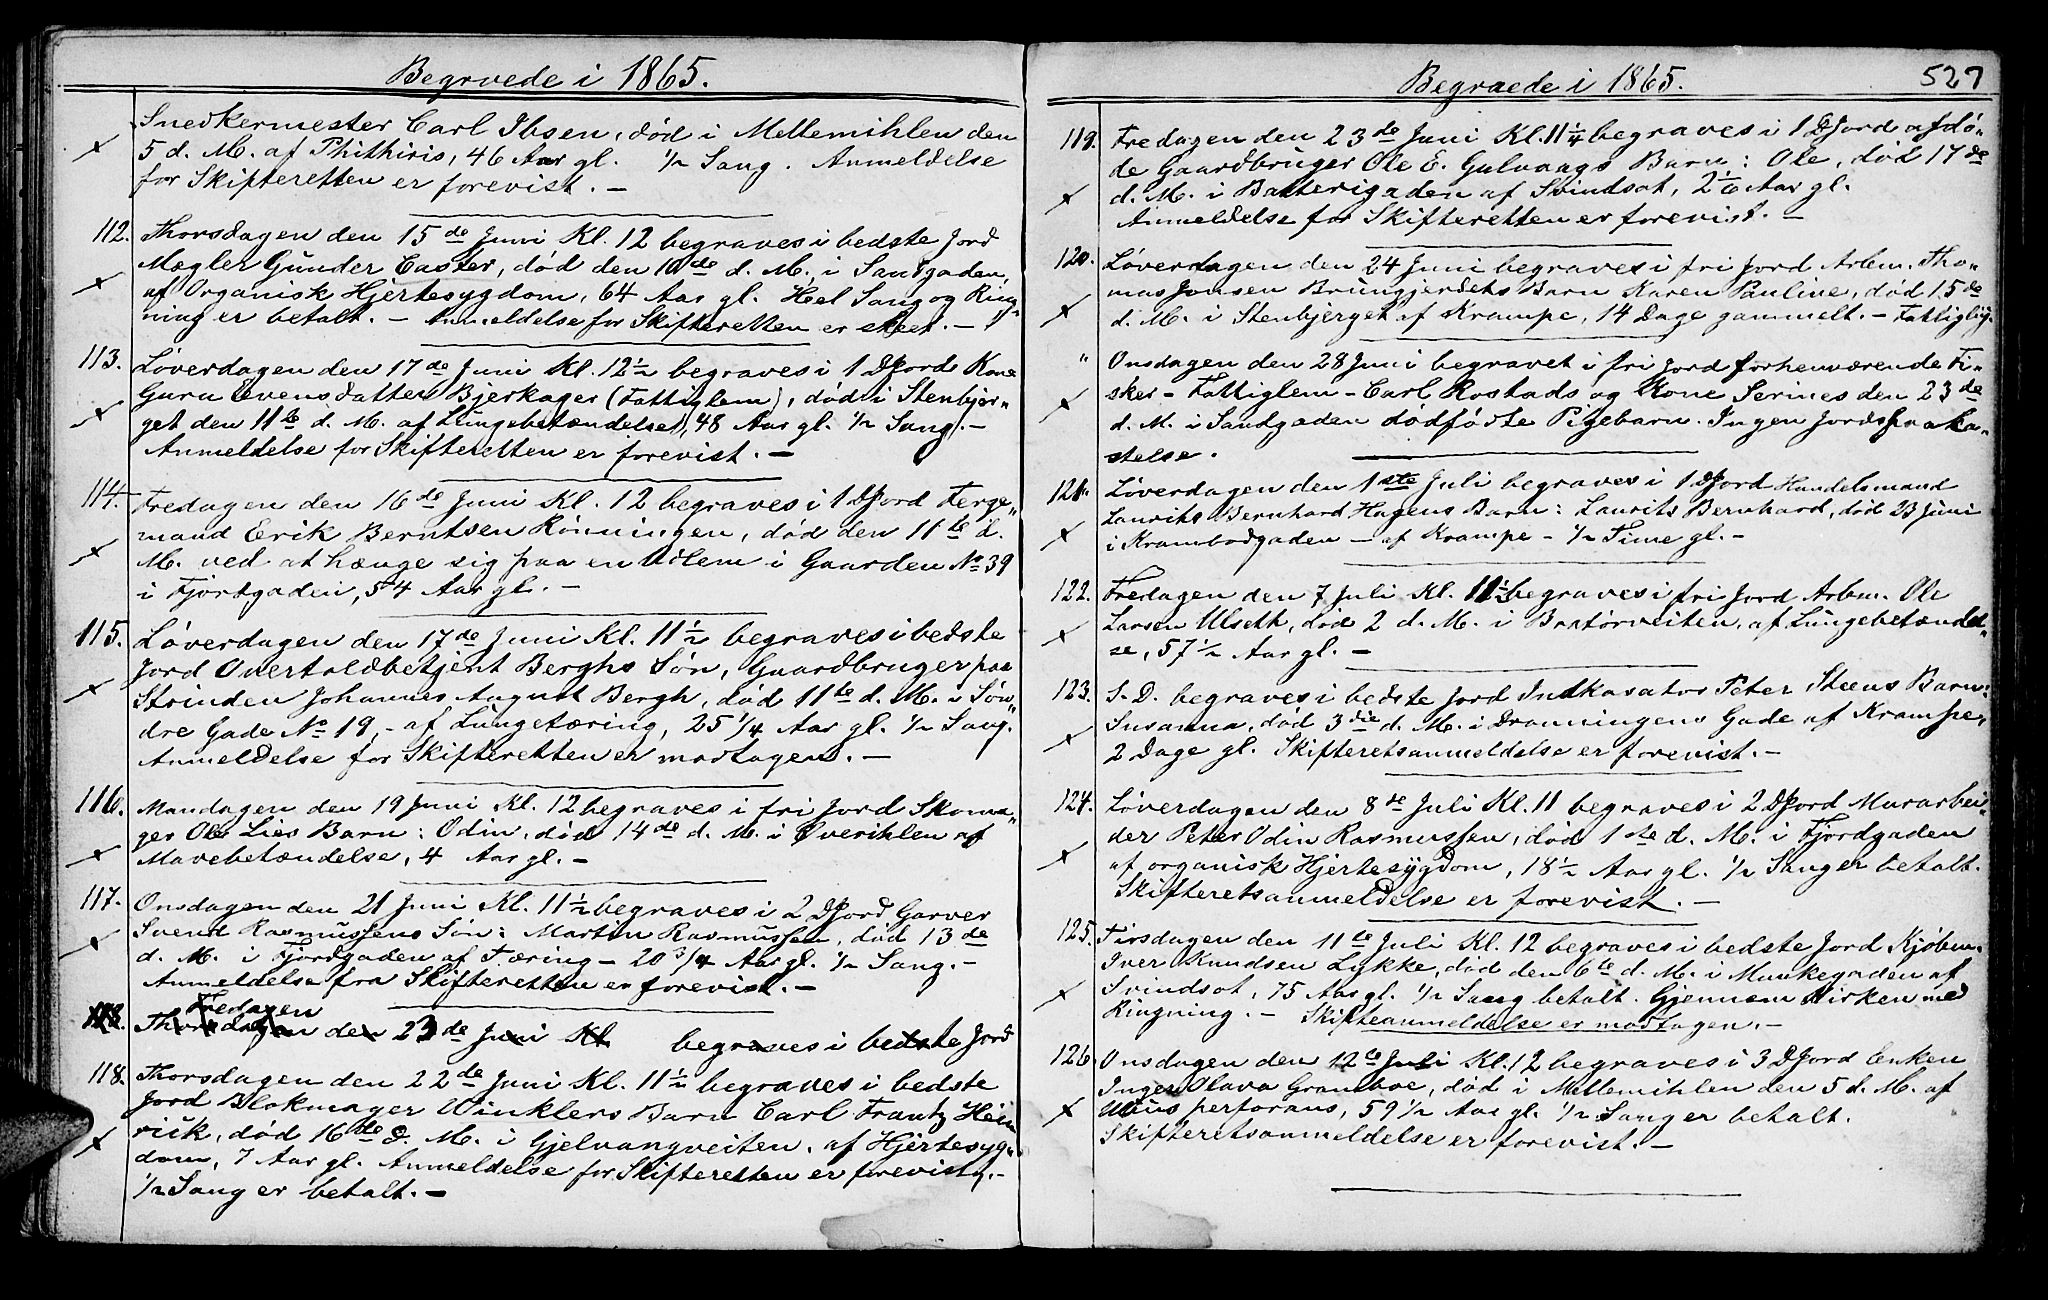 Begravede i 1865.
Snedkermester Carl Ibsen, død i Mellemihlen den
5 d. M. af Phithisis, 46 Aar gl. ½ Sang. Anmeldelse
for Skifteretten er forevist. —
112. Thorsdagen den 15de Juni Kl. 12 begraves i bedste Jord
Mægler Gunder Caster, død den 10de d. M. i Sandgaden,
af Organisk Hjertesygdom, 64 Aar gl. Heel Sang og Ring-
ning er betalt. — Anmeldelse for Skifteretten er skeet. —
113. Løverdagen den 17de Juni Kl. 12½ begraves i 1 D Jord Kone
Guru Evensdatter Bjerkager (Fattiglem), død i Stenbjer-
get den 11te d. M. af Lungebetændelse, 48 Aar gl. ½ Sang. —
Anmeldelse for Skifteretten er forevist. —
114. Fredagen den 16de Juni Kl. 12 begraves i 1 D Jord Ferge-
mand Erik Berntsen Rönningen, død den 11te d.
M. ved at hænge sig paa en Udlem i Gaarden No 39
i Fjordgaden, 54 Aar gl. —
115. Løverdagen den 17de Juni Kl. 11½ begraves i bedste
Jord Overtoldbetjent Berghs Søn, Gaardbruger paa
Strinden Johannes August Bergh, død 11te d. M. i Søn-
dre Gade No 19, — af Lungetæring, 25 1/4 Aar gl. ½ Sang.
Anmeldelse for Skifteretten er modtagen. —
116. Mandagen den 19 Juni Kl. 12 begraves i fri Jord Skoma-
ger Ole Lies Barn: Odin, død 14de d. M. i Øverihlen af
Mavebetændelse, 4 Aar gl. —
117. Onsdagen den 21 Juni Kl. 11½ begraves i 2 D Jord Garver
Svend Rasmussens Søn: Martin Rasmussen, død 13de
d. M. i Fjordgaden af Tæring — 20 3/4 Aar gl. ½ Sang. —
Anmeldelse fra Skifteretten er forevist. —
Fredagen
118. Thorsdagen den 23de Juni Kl. begraves i bedste Jord
118. Thorsdagen den 22de Juni Kl. 11½ begraves i bedste
Jord Blokmager Winklers Barn Carl Frantz Hein-
rick, død 16de d. M. i Gjelvangveiten, af Hjertesyg-
dom, 7 Aar gl. Anmeldelse for Skifteretten er forevist. —
½ Sang er betalt. —
Begravede i 1865. 527
119. Fredagen den 23de Juni Kl. 11¼ begraves i 1 D Jord afdø-
de Gaardbruger Ole E. Gulvaags Barn: Ole, død 17de
d. M. i Batterigaden af Svindsot, 2 1/6 Aar gl.
Anmeldelse for Skifteretten er forevist. —
120. Løverdagen den 24 Juni begraves i fri Jord Arbm. Tho-
mas Jonsen Brungjerdets Barn Karen Pauline, død 15de
d. M. i Stenbjerget af Krampe, 14 Dage gammelt. —
" Onsdagen den 28 Juni begravet i fri Jord forhenværende Fi-
sker — Fattiglem — Carl Rostads og Kone Serines den 23de
d. M. i Sandgaden dødfødte Pigebarn. Ingen Jordspaaka-
stelse.
121. Løverdagen den 1ste Juli begraves i 1 D Jord Handelsmand
Laurits Bernhard Hagens Barn: Laurits Bernhard, død 23 Juni
i Krambodgaden — af Krampe — ½ Time gl. —
122. Fredagen den 7 Juli Kl. 11½ begraves i fri Jord Arbm. Ole
Larsen Ulseth, død 2 d. M. i Bratørveiten, af Lungebetændel-
se, 57½ Aar gl. —
123. S. D. begraves i bedste Jord Indkasator Peter Steens Barn:
Susanna, død 3die d. M. i Dronningens Gade af Krampe,
2 Dage gl. Skifteretsanmeldelse er forevist. —
124. Løverdagen den 8de Juli Kl. 11 begraves i 2 D Jord Murarbei-
der Peter Odin Rasmussen, død 1ste d. M. i Fjordgaden
af organisk Hjertesygdom, 18½ Aar gl. ½ Sang er betalt.
Skifteretsanmeldelse er forevist. —
125. Tirsdagen den 11te Juli Kl. 12 begraves i bedste Jord Kjøbm.
Iver Knudsen Lykke, død den 6te d. M. i Munkegaden af
Svindsot, 75 Aar gl. ½ Sang betalt. Gjennem Kirken med
Ringning. — Skifteanmeldelse er modtagen. —
126. Onsdagen den 12te Juli Kl. 12 begraves i 3 D Jord Enken
Inger Olava Gramboe, død i Mellemihlen den 5 d. M. af
Ulcus perforans, 59½ Aar gl. ½ Sang er betalt.
Skifteretsanmeldelse er forevist. —